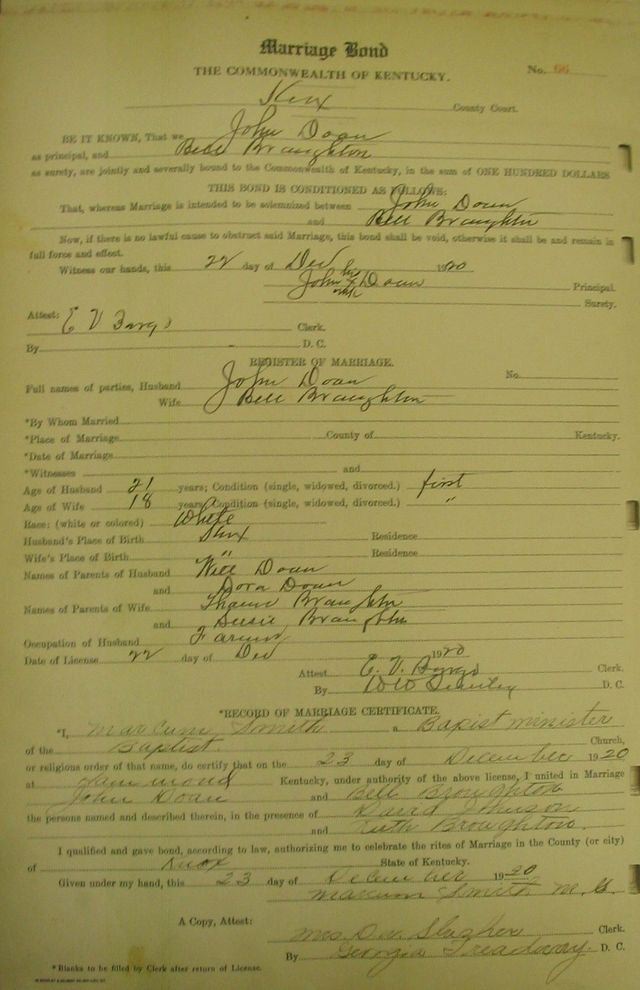 Marriage Bond
THE COMMONWEALTH OF KENTUCKY.
No. 66
Knox County Court.
BE IT KNOWN, That we John Doan
as principal, and Bell Braughton
as surety, are jointly and severally bound to the Commonwealth of Kentucky, in the sum of ONE HUNDRED DOLLARS
THIS BOND IS CONDITIONED AS FOLLOWS:
That, whereas Marriage is intended to be solemnized between John Doan
and Bell Braughton
Now, if there is no lawful cause to obstruct said Marriage, this bond shall be void, otherwise it shall be and remain in
full force and effect.
Witness our hands, this 22 day of Dec 1920
John X Doan Principal.
his
mark
Surety.
Attest:
E V Bargo Clerk.
By D. C.
REGISTER OF MARRIAGE.
No.
Full names of parties, Husband John Doan
Wife Bell Braughton
*By Whom Married
*Place of Marriage County of Kentucky.
*Date of Marriage
*Witnesses and
Age of Husband 21 years; Condition (single, widowed, divorced.) first
Age of Wife 18 years; Condition (single, widowed, divorced.) "
Race: (white or colored) White
Husband's Place of Birth Knox Residence
Wife's Place of Birth " Residence
Names of Parents of Husband Will Doan
and Dora Doan
Names of Parents of Wife Braughton
and Braughton
Occupation of Husband Farmer
Date of License 22 day of Dec 1920
Attest E. V. Bargo Clerk.
By D. C.
*RECORD OF MARRIAGE CERTIFICATE.
*I, Marcum Smith a Bapist minister
of the Baptist. Church,
or religious order of that name, do certify that on the 23 day of December 1920
at Kentucky, under authority of the above license, I united in Marriage
John Doan and Bell Broughton
the persons named and described therein, in the presence of David
and Ruth Broughton.
I qualified and gave bond, according to law, authorizing me to celebrate the rites of Marriage in the County (or city)
of Knox State of Kentucky.
Given under my hand, this 23 day of December 1920
Marcum Smith M. G.
A Copy, Attest:
Mrs. Clerk.
By Georgia Treadway. D. C.
*Blanks to be filled by Clerk after return of License.